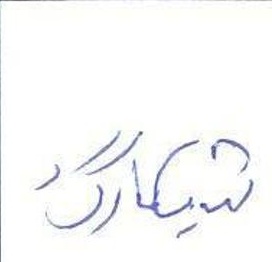 شیکارگ